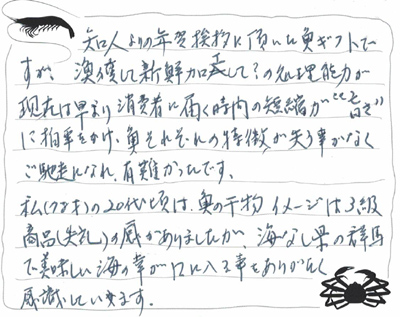 知人よりの年賀挨拶に頂いた魚ギフトで
すが、漁獲して新鮮加工しての処理能力が
現在は早より消費者に届く時間の短縮が"旨さ"
に拍車をかけ、魚それぞれの特徴が失う事がなく
ご馳走になれ、有難かったです。
私の20代頃は、魚の干物イメージは3級
商品(失礼)の感がありましたが、海なし県の群馬
で美味しい海の幸が口に入る事をありがたく
感謝しています。